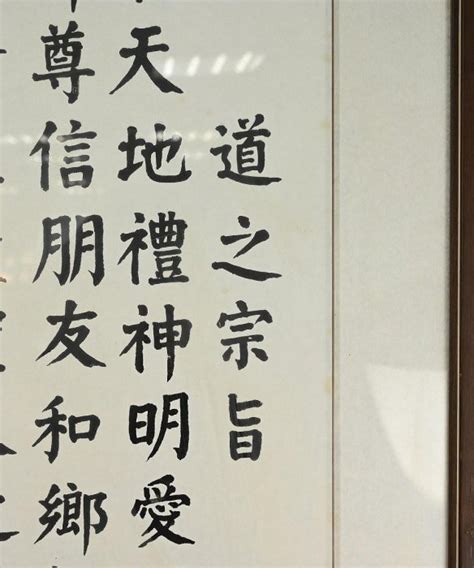 道之宗旨
天地禮神明愛
尊信朋友和鄉